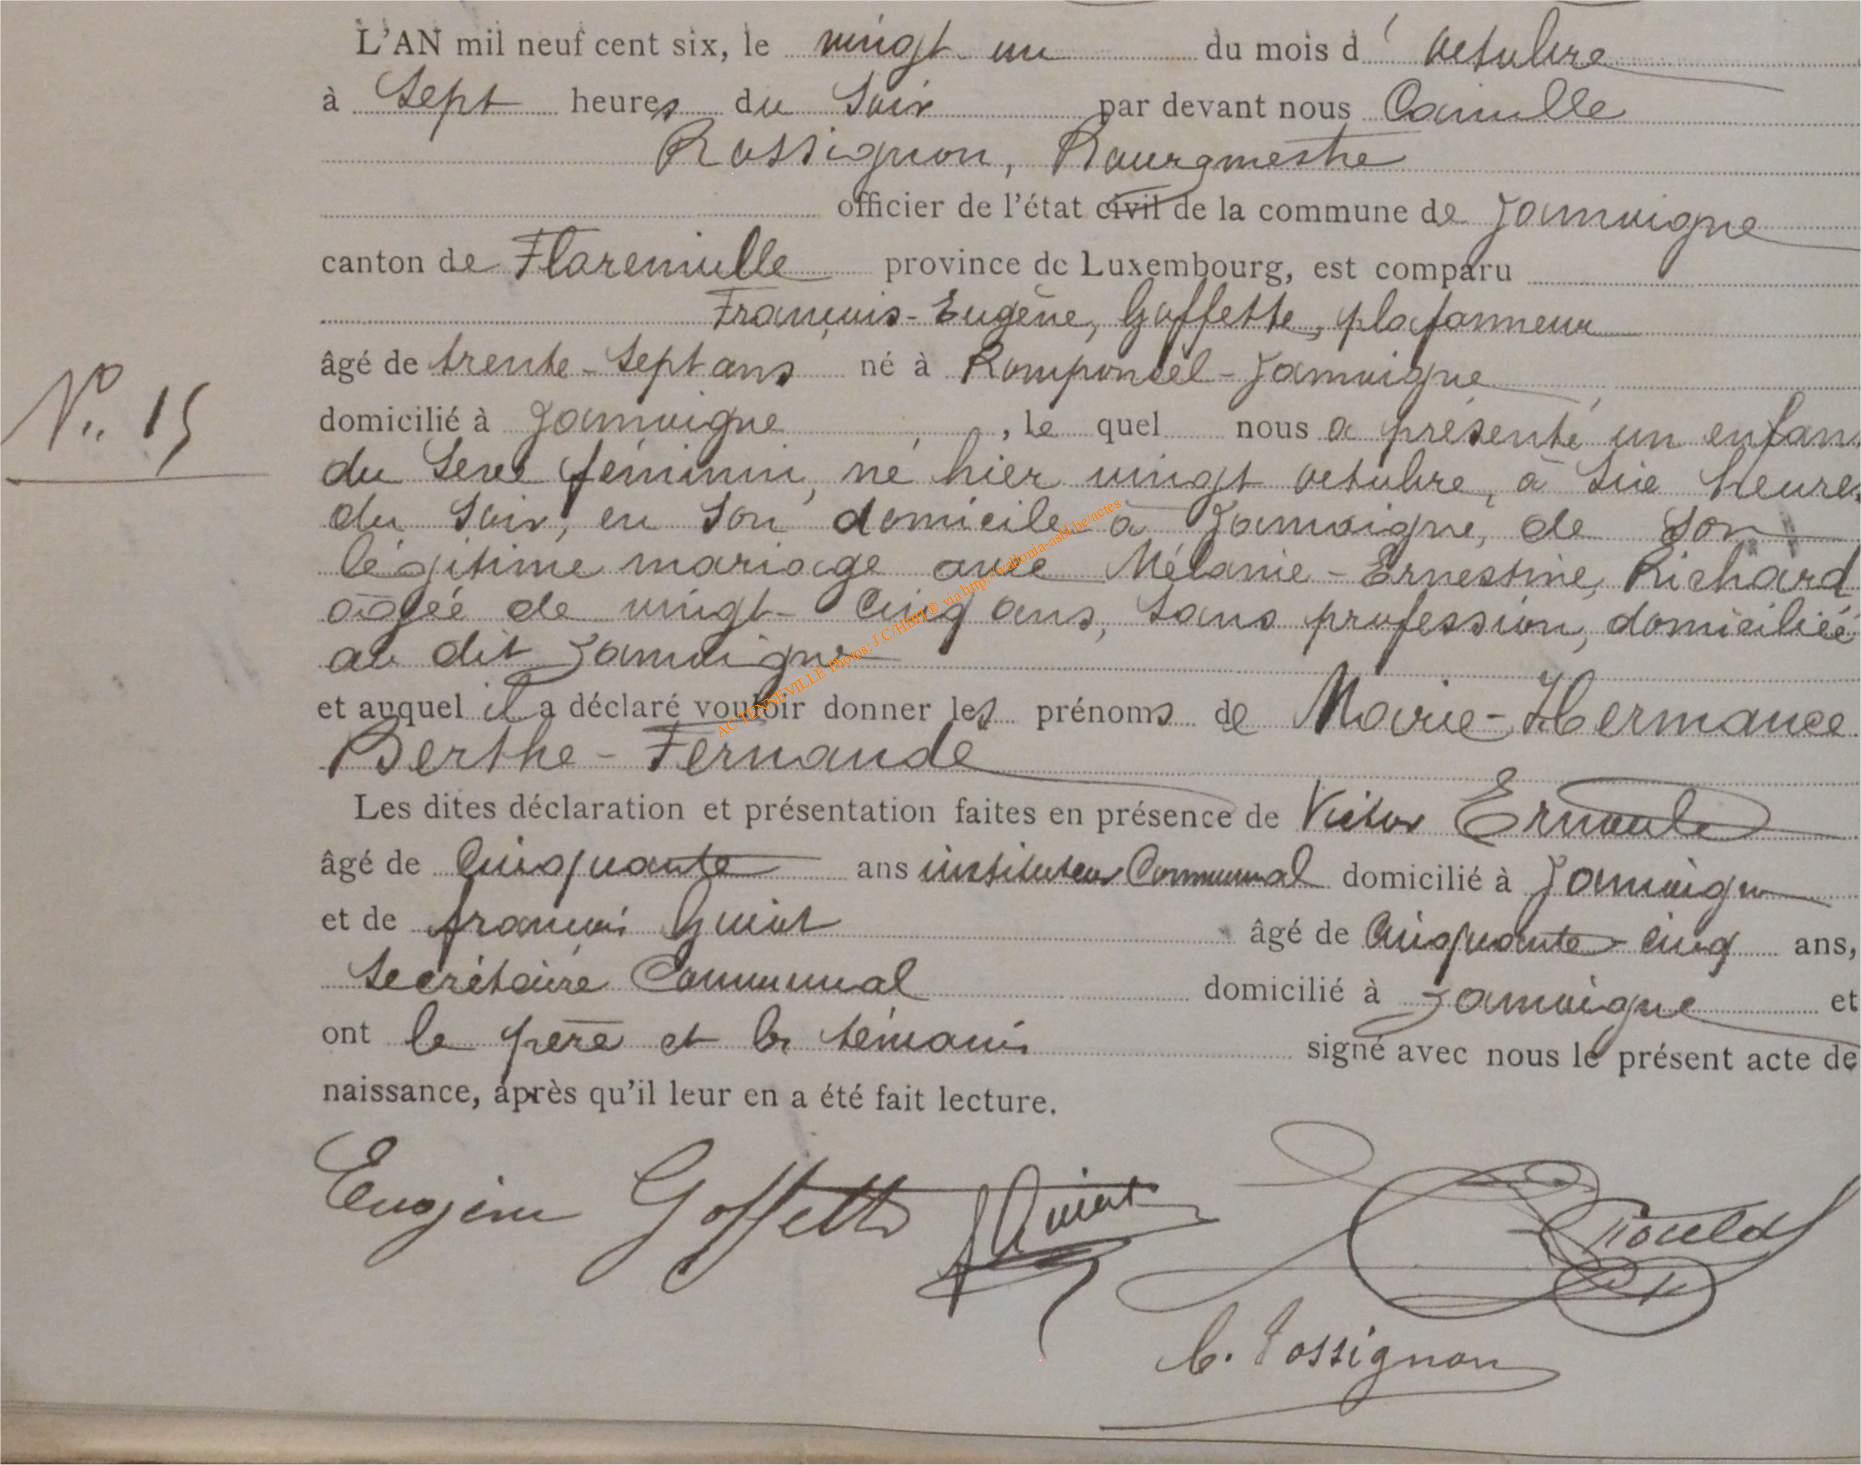 L'AN mil neuf cent six, le vingt un du mois d' octobre
à sept heures du soir par devant nous Camille
Rossignon, Bourgmestre
officier de l'état civil de la commune de Jamoigne
canton de Florenville province de Luxembourg, est comparu
François-Eugène, Goffette, plafonneur
âgé de trente-sept ans né à Romponcel-Jamoigne
N° 15
domicilié à Jamoigne, le quel nous a présenté un enfant
du sexe féminin, né hier vingt octobre, à six heures
du soir, en son domicile à Jamoigne, de son
légitime mariage avec Mélanie-Ernestine, Richard
âgée de vingt-cinq ans, sans profession, domiciliée
au dit Jamoigne
et auquel il a déclaré vouloir donner les prénoms de Marie-Hermance
Berthe-Fernande
Les dites déclaration et présentation faites en présence de Victor
âgé de cinquante ans instituteur communal domicilié à Jamoigne
et de françois Guiot âgé de cinquante-cinq ans,
secrétaire communal domicilié à Jamoigne et
ont le père et les témoins signé avec nous le présent acte de
naissance, après qu'il leur en a été fait lecture.
Eugène Goffette f Guiot
C. Rossignon
AC TINNEVILLE Photos J.C. via http://wallonia-asbl.be/actes